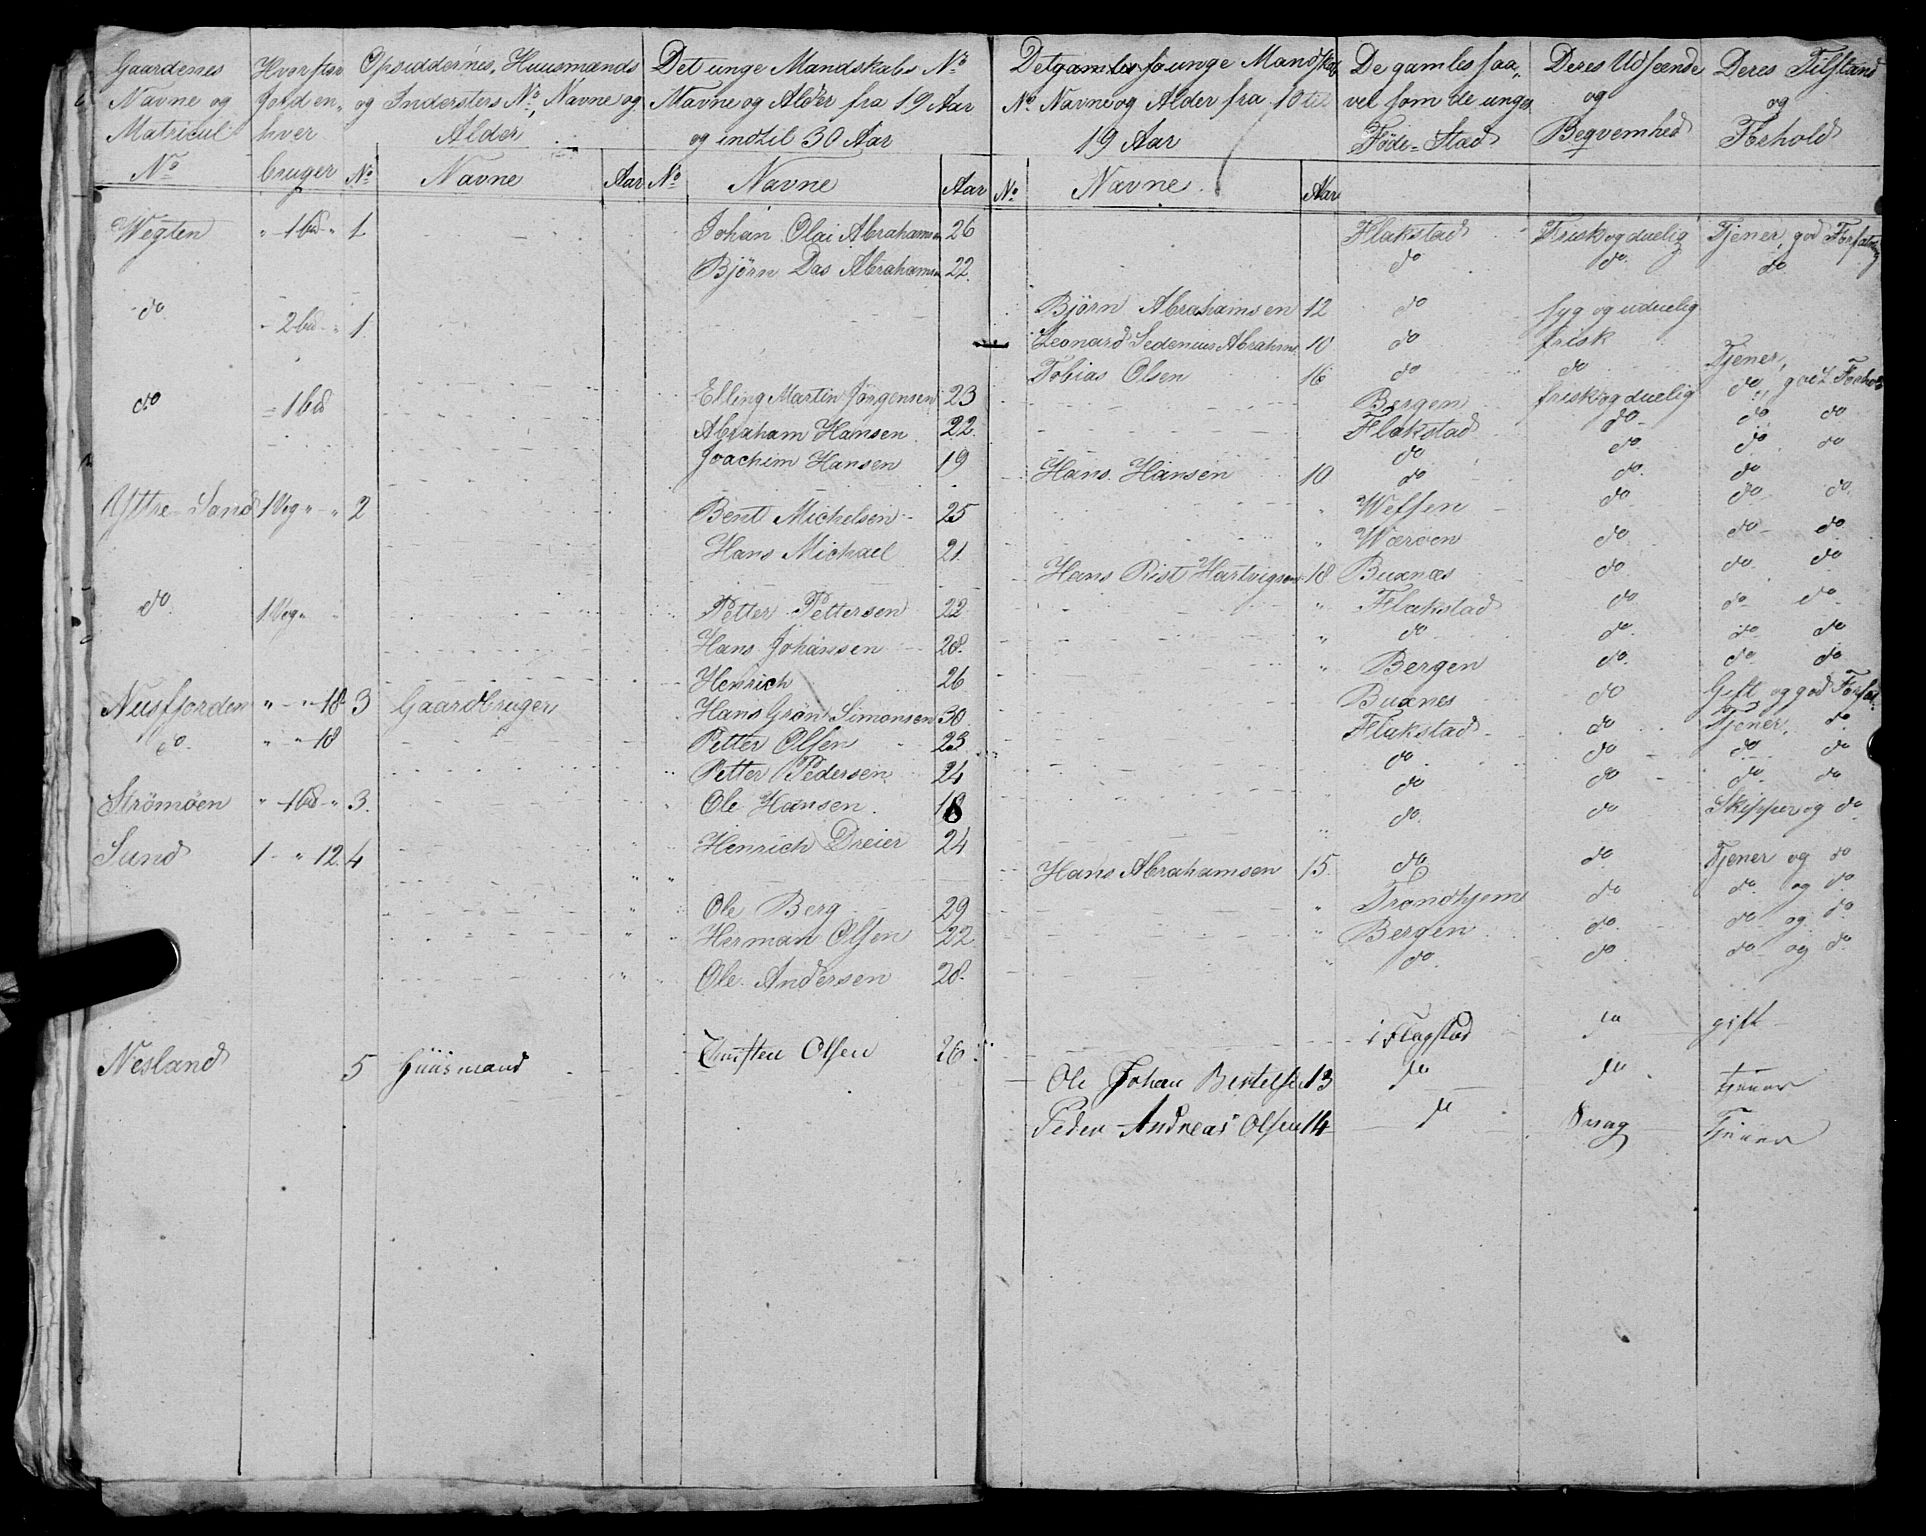 Gaardenes Navne og Matricul No
Hvorstor Jorden hver bruger
Opsiddernes, Huusmænds og Indersters No, Navne og Alder
Det unge Mandskabs No Navne og Alder fra 19 Aar og indtil 30 Aar
Det unge Mandskabs No Navne og Alder fra 10 til 19 Aar
De gamles saavel som de unges Föde-Stad
Deres Udseende og Beqvemhed
Deres Tilstand og Forhold
No Navne Aar No Navne Aar No Navne Aar
Wegten " 1 bd " 1 Johan Olai Abrahamsen 26 Flakstad Frisk og duelig Tjener, god Forfatning
Bjørn Das Abrahamsen 22 do do do
do - 2 bd - " 1 Bjørn Abrahamsen 12 do syg og uduelig
Leonard Sedenius Abrahams 10 do frisk
Tobias Olsen 16 do do Tjener,
do - 1 bd Elling Martin Jörgensen 23 Bergen frisk og duelig do, godt Forhold
Abraham Hansen 22 Flakstad do do do
Joachim Hansen 19 do do do do
Hans Hansen 10 do do do
Yttre Sand 1 Vog " " 2 Bent Michelsen 25 Welsen do do do
Hans Michael 21 Wæroen do do do
Hans Rist Hartvigsen 18 Buxnæs do do do
do 1 Vog " Petter Pettersen 22 Flakstad do do do
Hans Johansen 28 do do do do
Henrich 26 Bergen do do do
Nusfjorden " - " - 18 3 Gaardbruger Hans Grön Simonsen 30 Buxnes do Gift og god Forfat.
do " " 18 Petter Olsen 23 Flakstad do Tjener, do
Petter Pedersen 24 do do do do
Strömöen " - 1 bd - " 3 Ole Hansen 18 do do do do
Sund 1 - " 12 4 Henrich Dreier 24 do do Skipper og do
Hans Abrahamsen 15 do do Tjener og do
Ole Berg 29 Trondhjem do do og do
Herman Olsen 22 Bergen do do og do
Ole Andersen 28 do do do og do
Nesland 5 Huusmand Christen Olsen 26 i Flagstad do gift
Ole Johan Bertelsen 13 do do tjener
Peder Andreas Olsen 14 do Svag Tjener